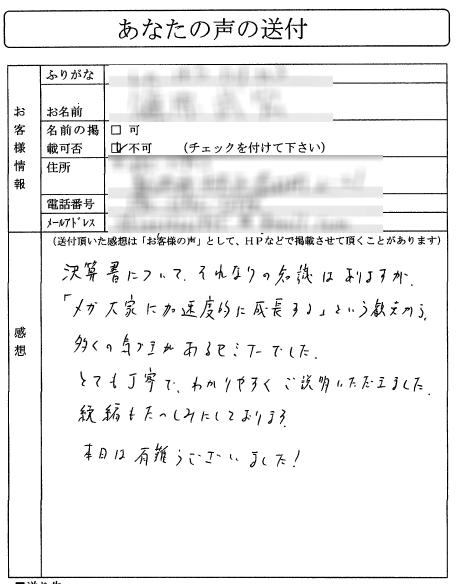 あなたの声の送付
お客様情報
ふりがな
お名前
名前の掲載可否
□ 可
☑ 不可 (チェックを付けて下さい)
住所
電話番号
メールアドレス
(送付頂いた感想は「お客様の声」として、HPなどで掲載させて頂くことがあります)
感想
決算書について、それなりの知識はありますが、
「メガ大家に加速度的に成長する」という観点から、
多くの気づきがあるセミナーでした。
とても丁寧で、わかりやすくご説明いただきました。
続編もたのしみにしております。
本日は有難うございました!